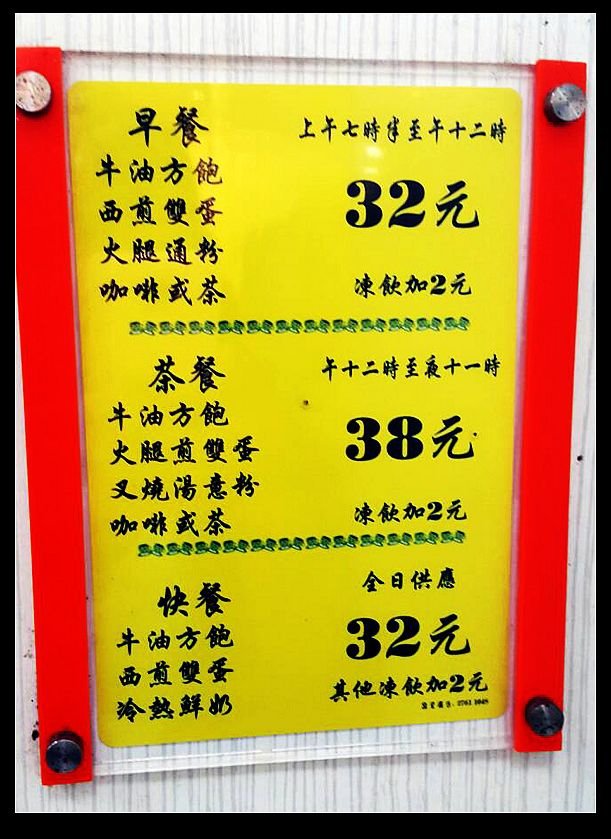 早餐
上午七時半至午十二時
牛油方飽
西煎雙蛋
32元
火腿通粉
咖啡或茶
凍飲加2元
茶餐
午十二時至夜十一時
牛油方飽
火腿煎雙蛋
38元
叉燒湯意粉
咖啡或茶
凍飲加2元
快餐
全日供應
牛油方飽
32元
西煎雙蛋
冷熱鮮奶
其他凍飲加2元
2761 1048